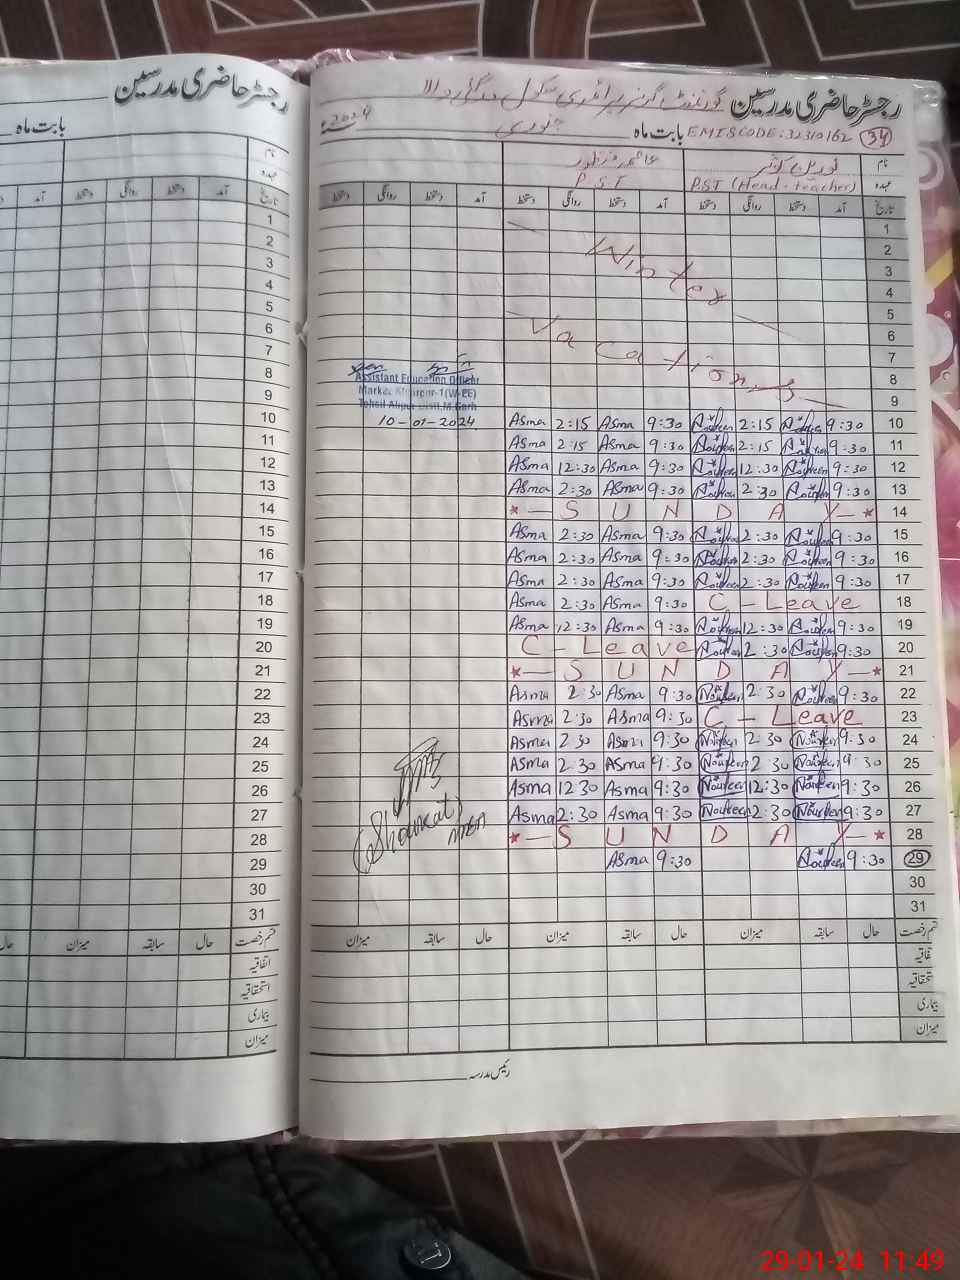 رجسٹر حاضری مدرسین
بابت ماہ
نام
عہدہ
تاریخ آمد دستخط روانگی دستخط آمد
1
2
3
4
5
6
7
8
9
10
11
12
13
14
15
16
17
18
19
20
21
22
23
24
25
26
27
28
29
30
31
قسم رخصت حال سابقہ میزان حال
اتفاقیہ
استحقاقیہ
بیماری
میزان
رجسٹر حاضری مدرسین گورنمنٹ گرلز پرائمری سکول
34 EMISCODE:32310162 بابت ماہ جنوری 2024
نام نورین کوثر
عہدہ PST (Head-teacher) P.S.T
تاریخ آمد دستخط روانگی دستخط آمد دستخط روانگی دستخط آمد دستخط روانگی دستخط
1
2
3
4
5
6
7
8
9
Winter
Vacations
Assistant Education Officer
Markaz Alipur-1(W-EE)
Tehsil Alipur Distt.M.Garh
10-01-2024
Asma 2:15 Asma 9:30 Noureen 2:15 Noureen 9:30 10
Asma 2:15 Asma 9:30 Noureen 2:15 Noureen 9:30 11
Asma 12:30 Asma 9:30 Noureen 12:30 Noureen 9:30 12
Asma 2:30 Asma 9:30 Noureen 2:30 Noureen 9:30 13
*—SUNDAY—* 14
Asma 2:30 Asma 9:30 Noureen 2:30 Noureen 9:30 15
Asma 2:30 Asma 9:30 Noureen 2:30 Noureen 9:30 16
Asma 2:30 Asma 9:30 Noureen 2:30 Noureen 9:30 17
Asma 2:30 Asma 9:30 C-Leave 18
Asma 12:30 Asma 9:30 Noureen 12:30 Noureen 9:30 19
C-Leave Noureen 2:30 Noureen 9:30 20
*—SUNDAY—* 21
Asma 2:30 Asma 9:30 Noureen 2:30 Noureen 9:30 22
Asma 2:30 Asma 9:30 C-Leave 23
Asma 2:30 Asma 9:30 Noureen 2:30 Noureen 9:30 24
Asma 2:30 Asma 9:30 Noureen 2:30 Noureen 9:30 25
Asma 12:30 Asma 9:30 Noureen 12:30 Noureen 9:30 26
Asma 2:30 Asma 9:30 Noureen 2:30 Noureen 9:30 27
(Shoukat)
MEA
*—SUNDAY—* 28
Asma 9:30 Noureen 9:30 29
30
31
قسم رخصت حال سابقہ میزان حال سابقہ میزان حال سابقہ میزان
اتفاقیہ
استحقاقیہ
بیماری
میزان
رئیس مدرسہ
29-01-24 11:49